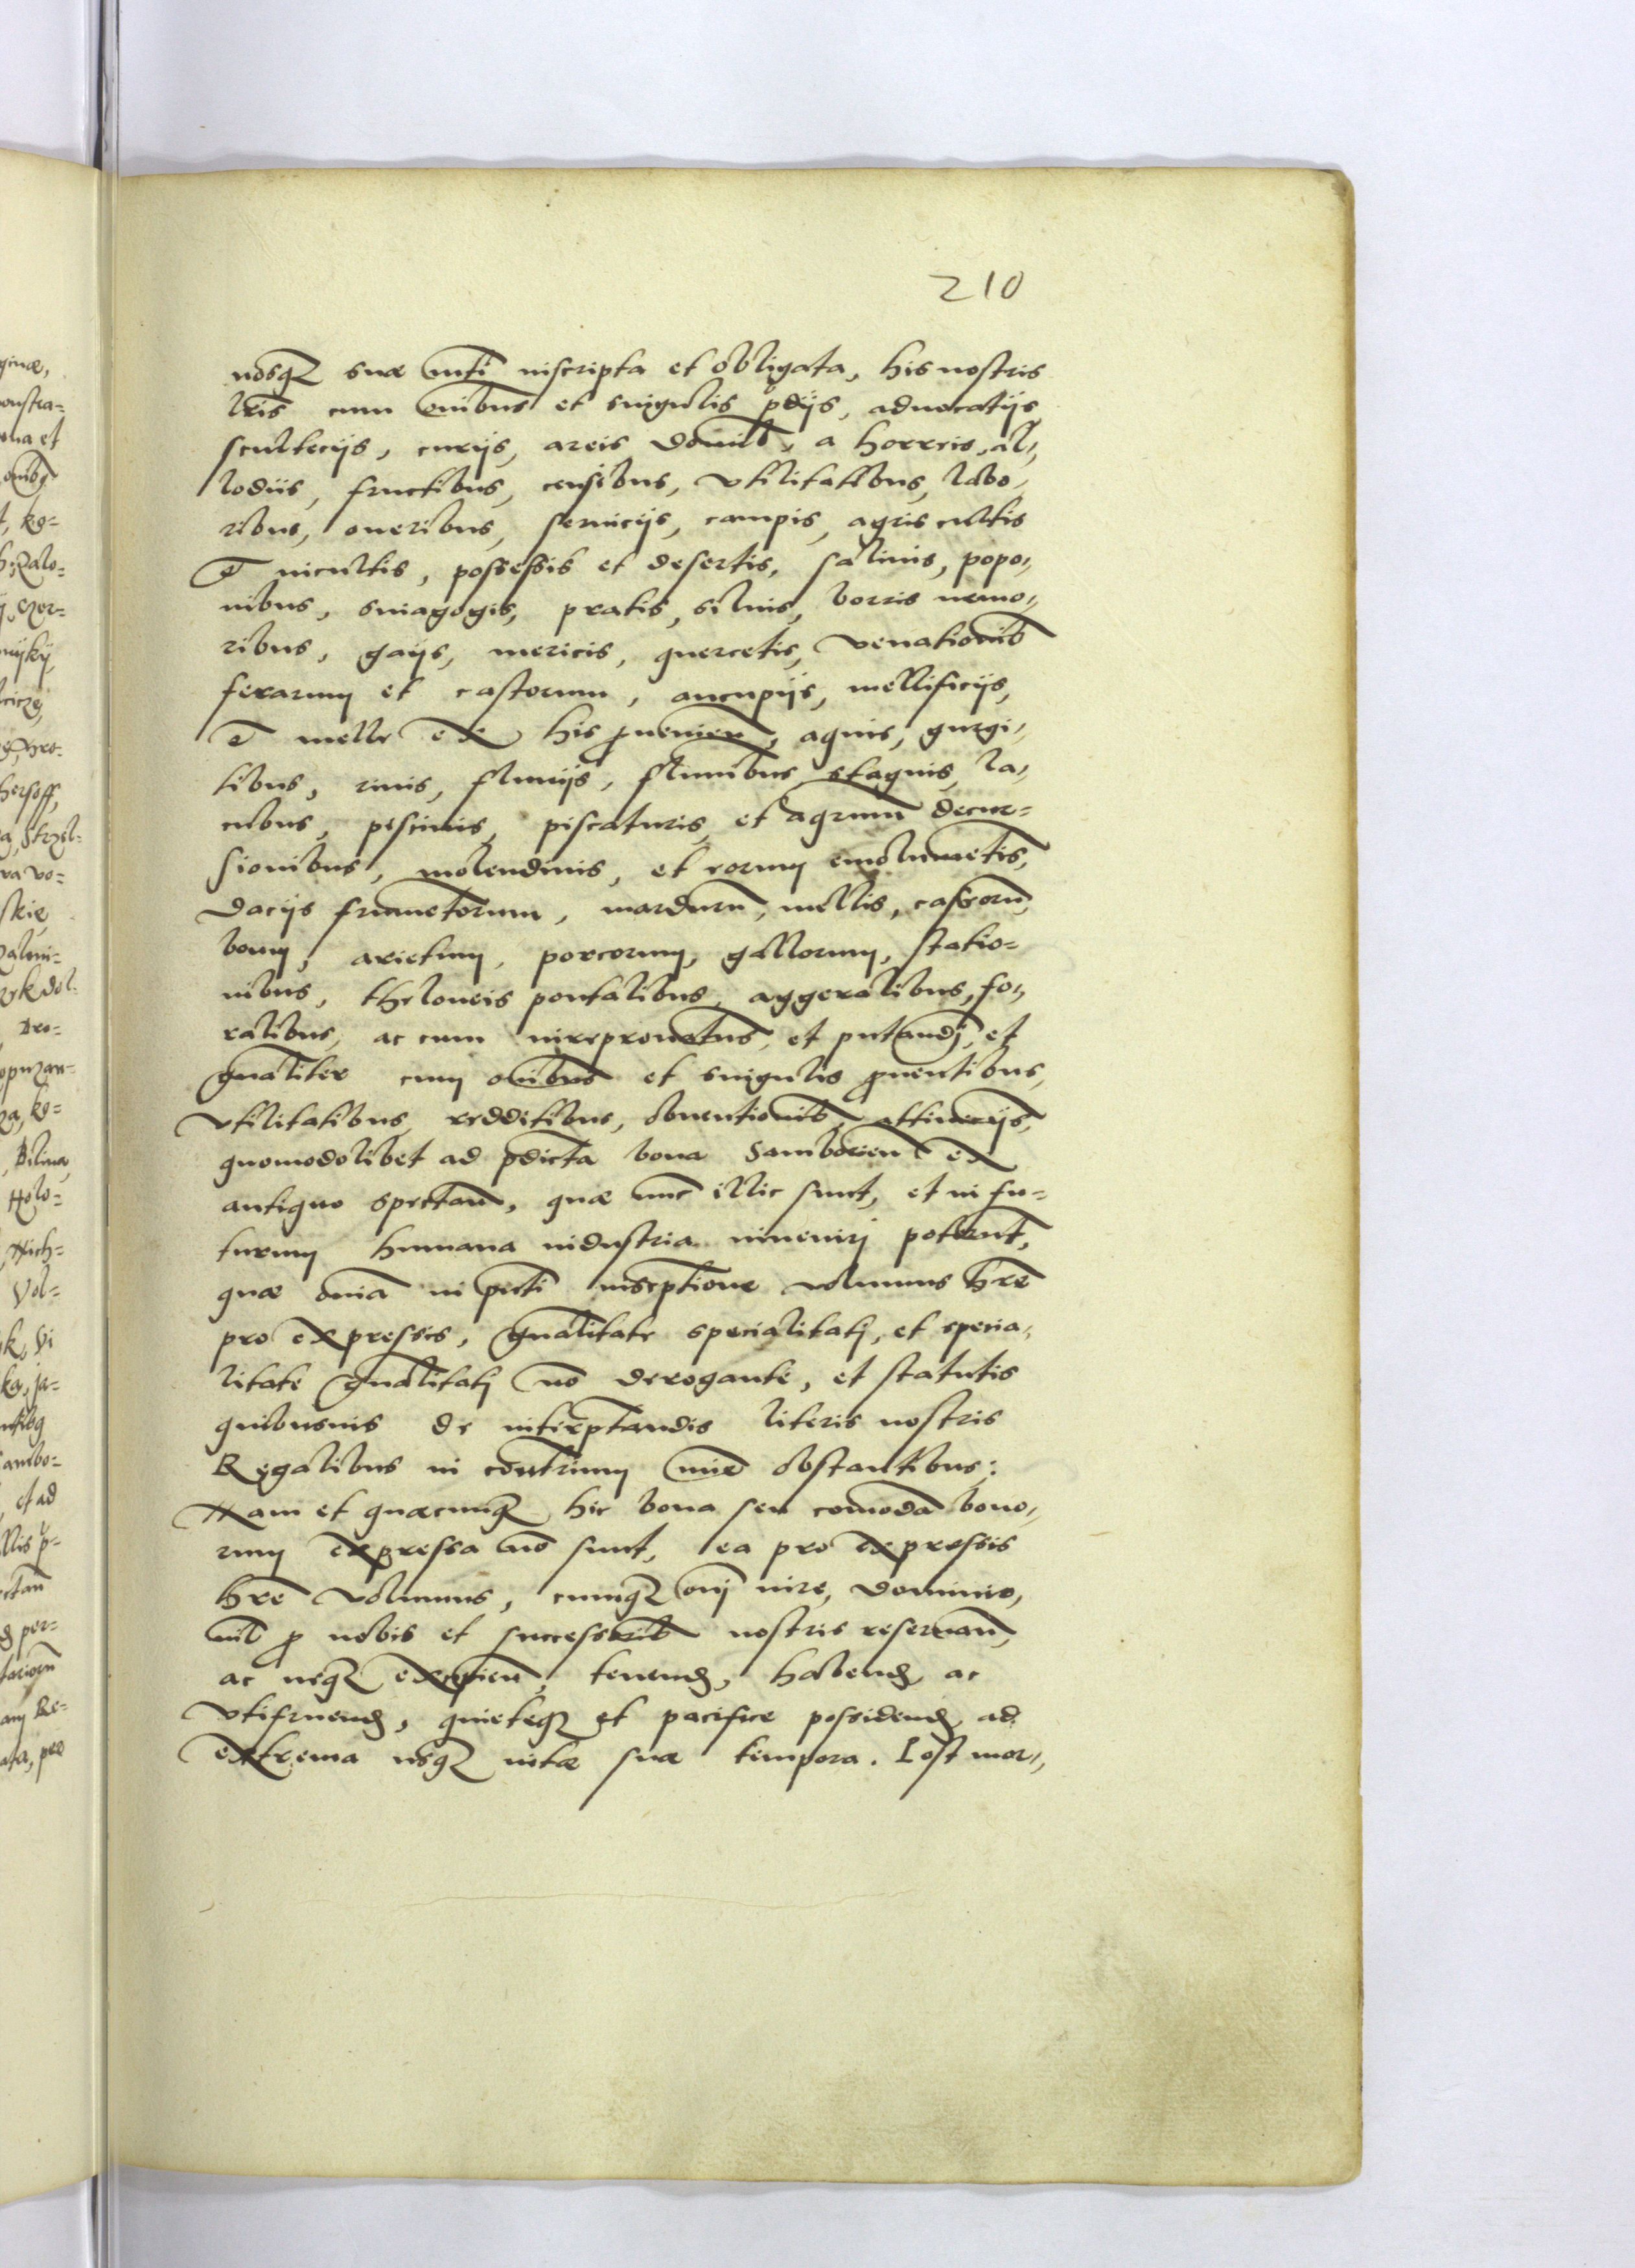 210
nosq; suæ mti inscripta et obligata, his nostris
lris cum oibus et singulis pdijs, aduocatijs
scultecijs, curijs, areis domib, a horreis, al„
lodiis, fructibus, censibus, vtilitatibus, labo„
ribus, oneribus, seruicijs, campis, agris cultis
et incultis, possessis et desertis, salinis, popo„
nibus, sinagogis, pratis, siluis, borris nemo„
ribus, gaijs, mericis, quercetis, venationib
ferarum et castorum, aucupijs, mellificijs,
et melle ex his puenien, aquis, gurgi„
tibus, riuis, fluuijs, fluminibus stagnis, la„
cubus, piscinis, piscaturis, et aqrum decur=
sionibus, molendinis, et eorum emolumetis,
dacijs frumetorum, marduru, mellis, castoru,
boum, arietum, porcorum, gallorum, statio=
nibus, theloneis pontalibus, aggeralibus, fo„
ralibus, ac cum iurepronatus, et pntandj, et
gnaliter cum oibus et singulis puentibus,
vtilitatibus, redditibus, obuentionib, attinecijs,
quomodolibet ad pdicta bona Samborien ex
antiquo spectan, quæ nunc illic sunt, et in fu=
turum humana industria inuenirj poterunt,
quæ omia in pnti inscptione volumus hre
pro expressis, gnalitate specialitatj, et specia„
litate gnalitatj no derogante, et statutis
quibusuis de interptandis literis nostris
Regalibus in contrium mie obstantibus:
Nam et quæcunq; hic bona seu comoda bono„
rum expressa no sunt, ea pro expressis
hre volumus, cumq; oni iure, dominio,
nil p nobis et successorib nostris reseruan,
ac neq; excipien, tenend, habend ac
vtifruend, quieteq; et pacifice possidend ad
extrema usq; uitæ suæ tempora. Post mor„